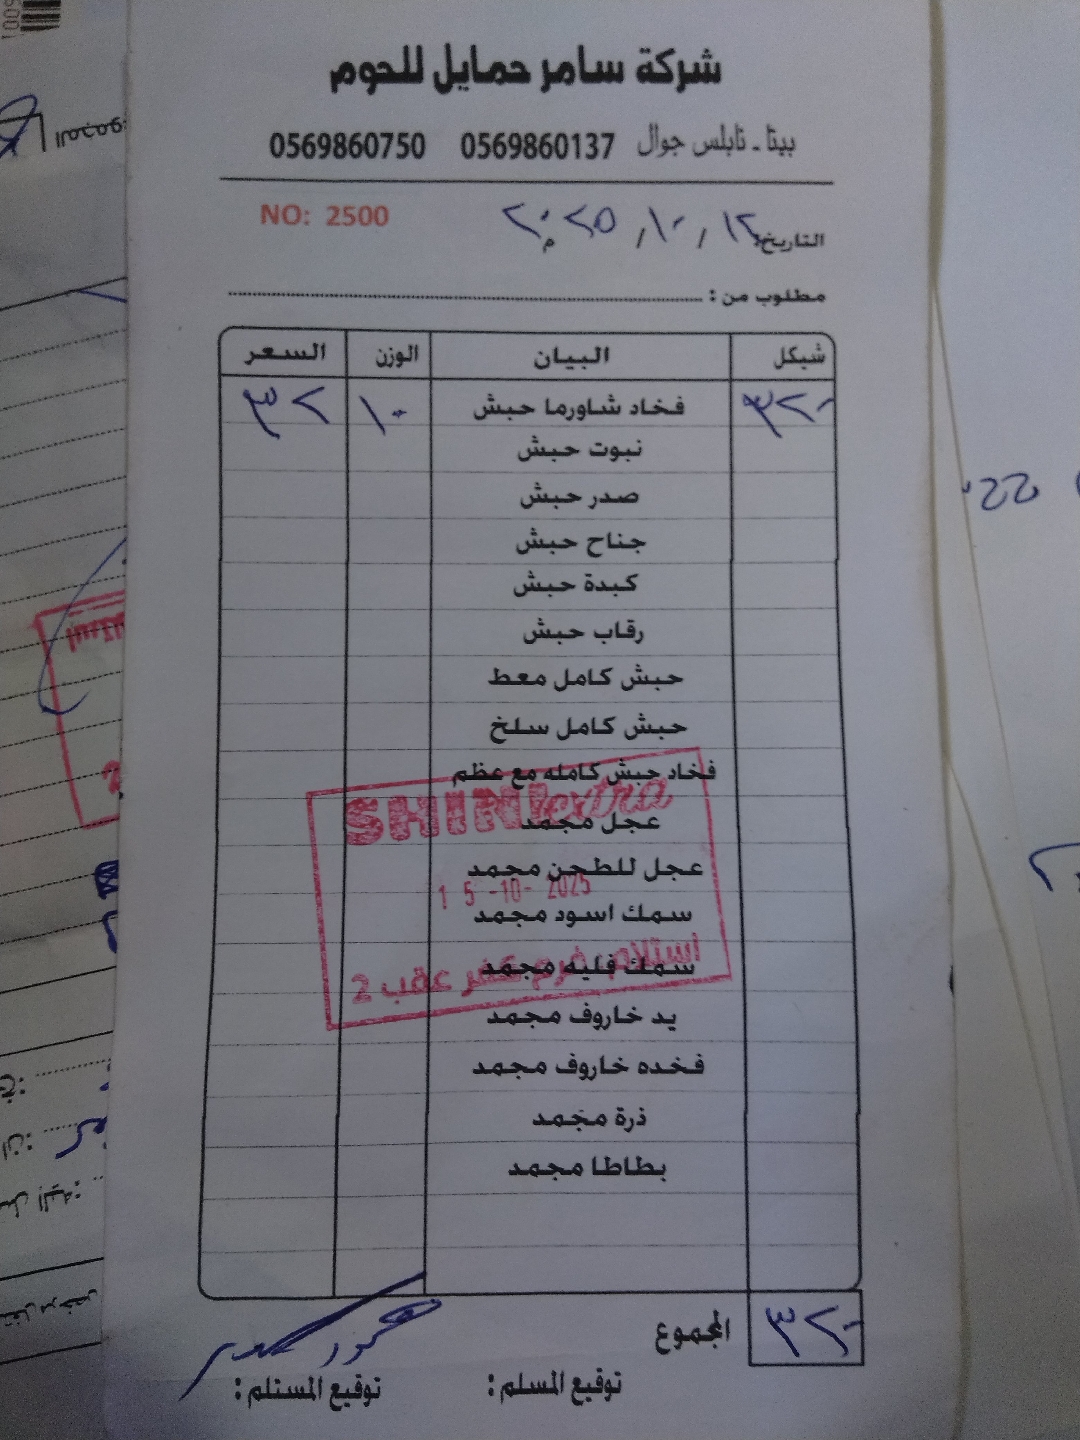 شركة سامر حمايل للحوم
بيتا - نابلس جوال 0569860137 0569860750
NO: 2500
التاريخ: ١٢ / ١٠ / ٢٠٢٥ م
مطلوب من :
شيكل البيان الوزن السعر
٣٢٠ فخاد شاورما حبش ١٠ ٣٢
نبوت حبش
صدر حبش
جناح حبش
كبدة حبش
رقاب حبش
حبش كامل معط
حبش كامل سلخ
فخاد حبش كامله مع عظم
SHINI extra
عجل مجمد
عجل للطحن مجمد
15-10-2025
سمك اسود مجمد
سمك فليه مجمد
استلام فرع كفر عقب 2
يد خاروف مجمد
فخده خاروف مجمد
ذرة مجمد
بطاطا مجمد
المجموع ٣٢٠
توقيع المسلم : توقيع المستلم :